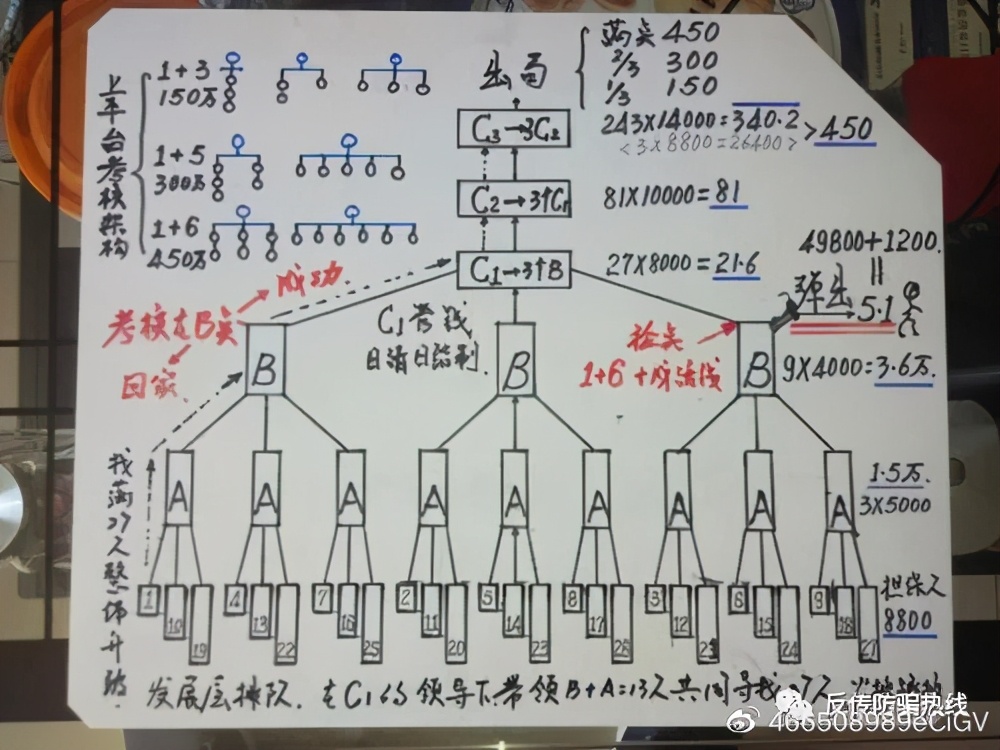 上平台考核架构
1+3
150万
1+5
300万
1+6
450万
出局
满点 450
2/3 300
1/3 150
C3→3C2
243X14000=340.2
<3X8800=26400>
>450
C2→3个C1
81X10000=81
C1→3个B
27X8000=21.6
49800+1200.
弹出
5.1
考核在B点
成功
回家
C1考钱
日清日结制
捡点
1+6+成活线
B
B
B
9X4000=3.6万.
A
A
A
A
A
A
A
A
A
1.5万.
3X5000
找满27人整体升级
1
10
19
4
13
22
7
16
25
2
11
20
5
14
23
8
17
26
3
12
21
6
15
24
9
18
27
担保人
8800
发展层排队. 在C1的领导下.带领B+A=13人共同寻找27人
反传防骗热线
466508989eCiGV